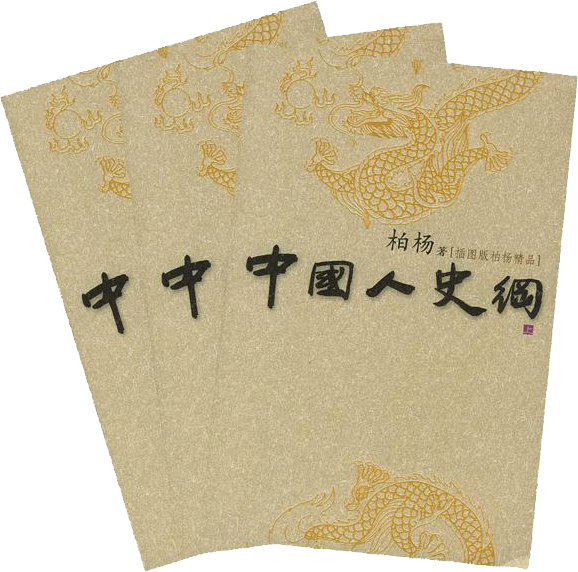 柏杨 著 [插图版柏杨精品]
中 中 中國人史綱
上